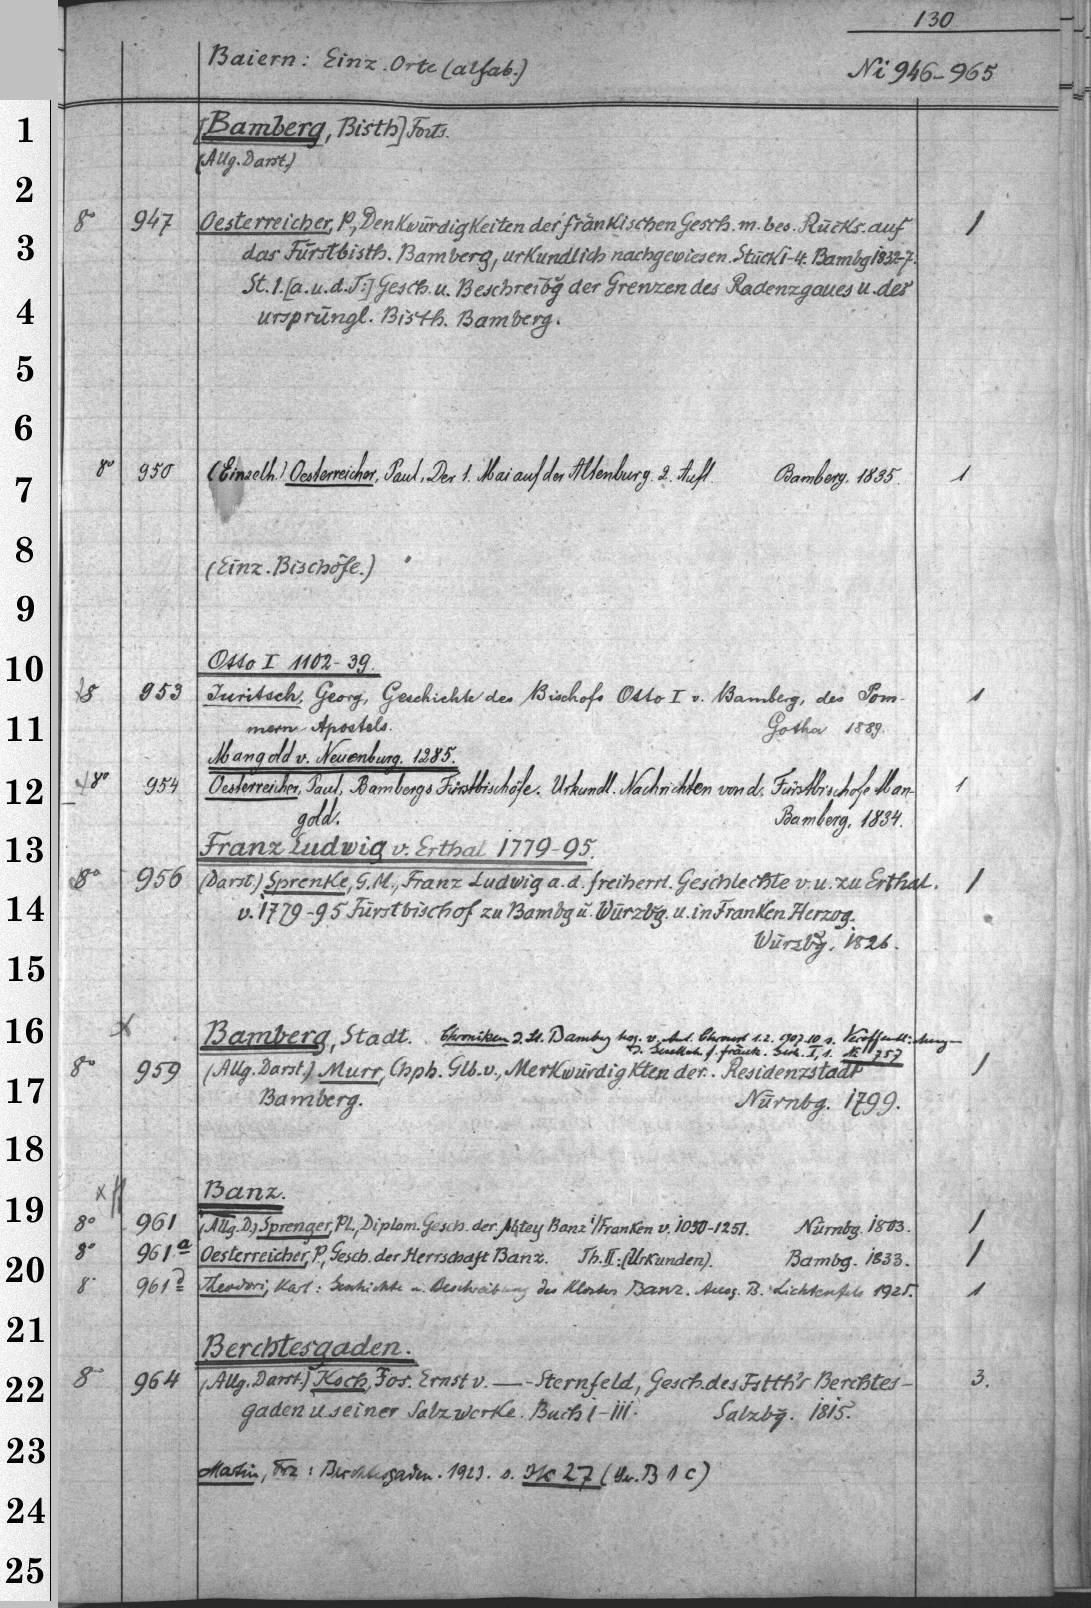 130
Baiern: Einz. Orte (alfab.)
Ni 946-965
1
[Bamberg, Bisth] Forts.
(Allg. Darst.)
2
8° 947 Oesterreicher, P., Denkwürdigkeiten der fränkischen Gesch. m. bes. Rücks. auf 1
3
das Fürstbisth. Bamberg, urkundlich nachgewiesen. Stück 1-4. Bambg 1832-7.
St. 1. [a.u.d.T:] Gesch. u. Beschreibg der Grenzen des Radenzgaues u. des
4
ursprüngl. Bisth. Bamberg.
5
6
8° 950 (Einzelh.) Oesterreicher, Paul, Der 1. Mai auf der Altenburg. 2. Aufl. Bamberg. 1835. 1
7
8
(Einz. Bischöfe.)
9
10
Otto I 1102-39.
8 953 Juritsch, Georg, Geschichte des Bischofs Otto I v. Bamberg, des Pom- 1
11
mern Apostels. Gotha 1889.
Mangold v. Neuenburg. 1285.
12
8° 954 Oesterreicher, Paul, Bambergs Fürstbischöfe. Urkundl. Nachrichten von d. Fürstbischofe Man- 1
gold. Bamberg, 1834.
13
Franz Ludwig v. Erthal 1779-95.
8° 956 (Darst.) Sprenke, G.M., Franz Ludwig a. d. freiherrl. Geschlechte v. u. zu Erthal. 1
14
v. 1779-95 Fürstbischof zu Bambg u. Würzbg. u. in Franken Herzog.
Würzbg. 1826.
15
16
x Bamberg, Stadt. Chroniken d. St. Bamberg hsg. v. Ant. Chroust 1.2. 1907.10 s. Veröffentl.
d. Gesellsch. f. fränk. Gesch. I, 1. Ni 757
8° 959 (Allg. Darst.) Murr, Chph. Glb. v., Merkwürdigkten der.. Residenzstadt 1
17
Bamberg. Nürnbg. 1799.
18
Banz.
19
8° 961 (Allg. D.) Sprenger, Pl., Diplom. Gesch. der Abtey Banz i/Franken v. 1050-1251. Nürnbg. 1803. 1
8° 961a Oesterreicher, P., Gesch. der Herrschaft Banz. Th. II: (Urkunden). Bambg. 1833. 1
20
8 961 Theodori, Karl: Geschichte u. Beschreibung des Kloster Banz. Ausg. B. Lichtenfels 1925. 1
21
Berchtesgaden.
8° 964 (Allg. Darst.) Koch, Jos. Ernst v. — -Sternfeld, Gesch. des Fstth's Berchtes- 3.
22
gaden u. seiner Salzwerke. Buch I-III. Salzbg. 1815.
23
Martin, Frz: Berchtesgaden. 1923. s. Ik 27 (Ser. B 1 c)
24
25